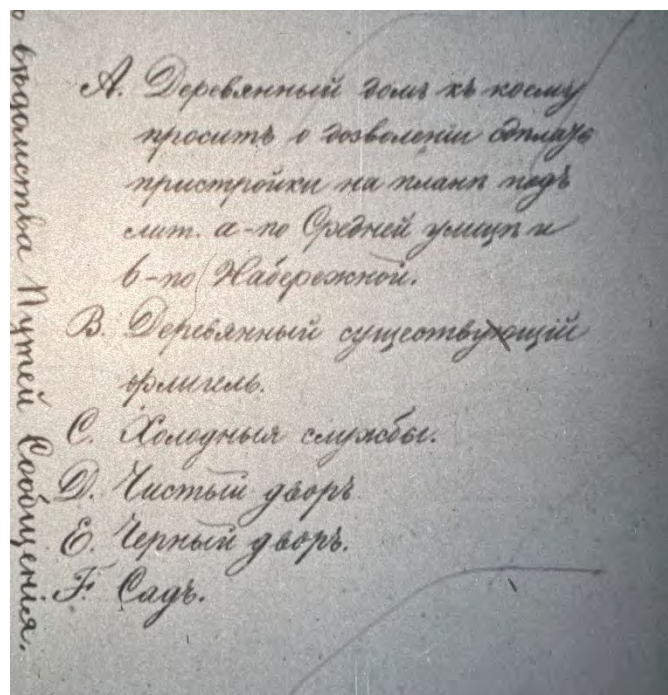 о вѣдомства Путей Сообщенія.
A. Деревянный домъ къ коему
проситъ о дозволеніи сдѣлать
пристройки на планѣ подъ
лит. а-по Средней улицѣ и
b-по Набережной.
B. Деревянный существующій
флигель.
C. Холодныя службы.
D. Чистый дворъ
E. Черный дворъ.
F. Садъ.